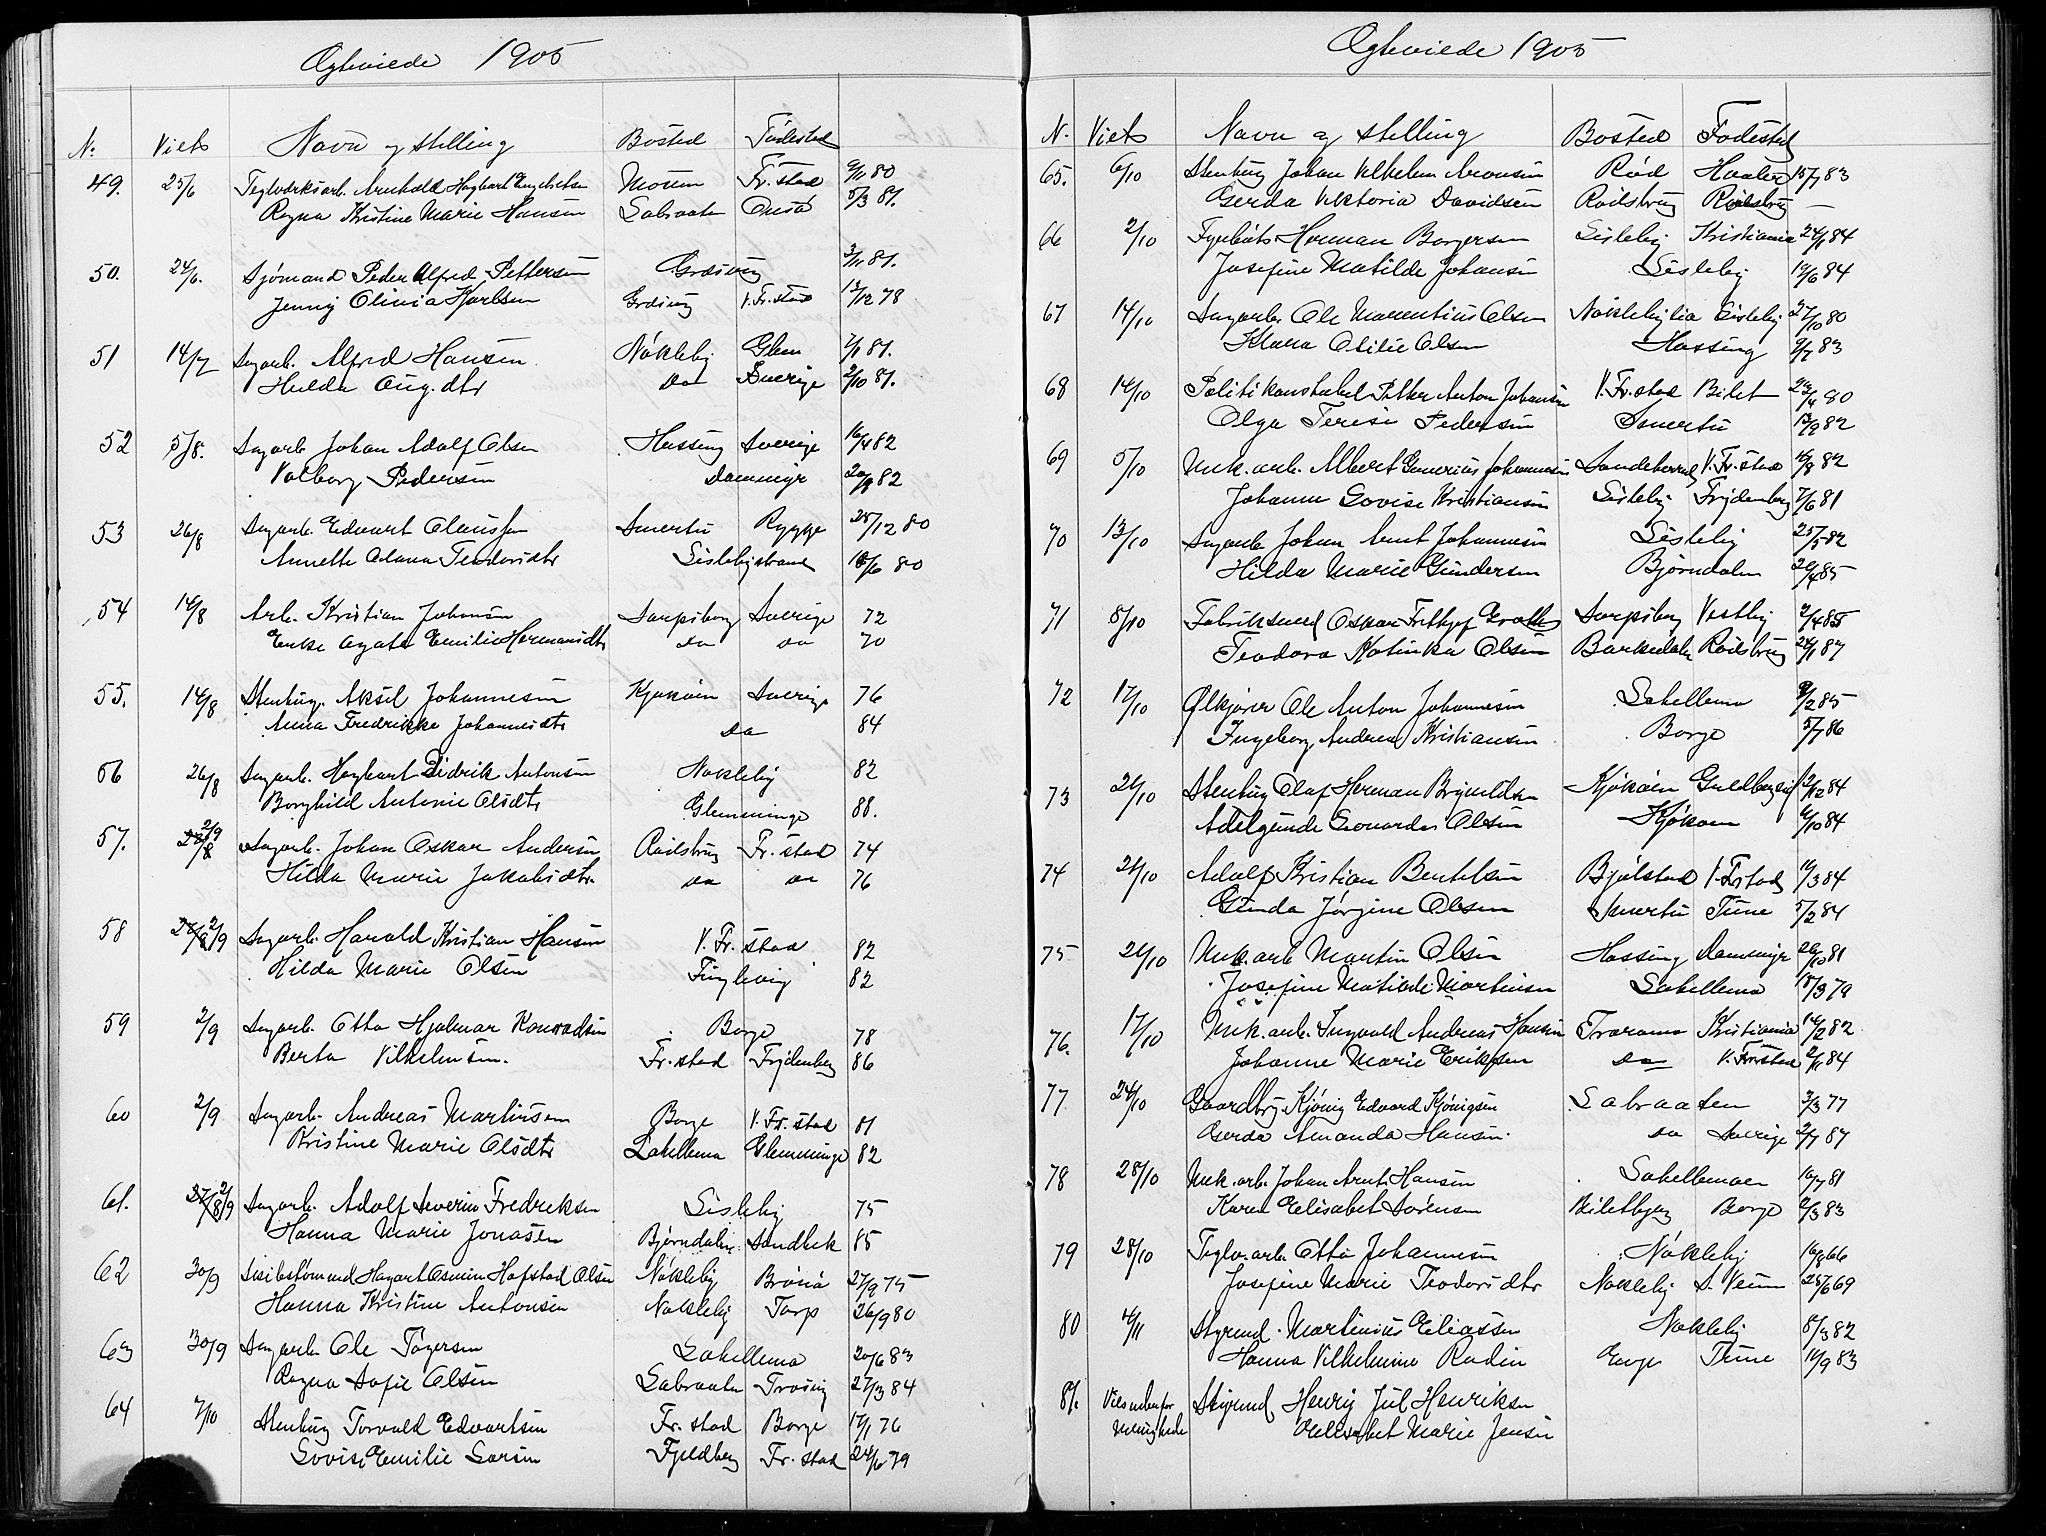 Ægteviede 1905
N: Viets Navn og stilling Bosted Födested
49. 25/6 Teglværksarb. Arnhold Hagbart Engebretsen Moum Fr. stad 9/11 80
Ragna Kristine Marie Hansen Labraaten Onsö 5/3 81.
50. 24/6. Sjömand Peder Alfred Pettersen Græsvig 3/11 81.
Jenny Olivia Karlsen Græsvig V. Fr. stad 13/12 78
51 14/7 Sagarb. Alfred Hansen Nökleby Glem 7/1 81.
Hulda Aug.dtr do Sverige 2/10 81.
52 5/8. Sagarb. Johan Adolf Olsen Hassing Sverige 16/4 82
Valborg Pedersen Dammyr 20/9 82
53 26/8 Sagarb. Edvart Claussen Smertu Rygge 28/12 80
Annette Olana Teodorsdtr Lislebystrand 18/6 80
54 14/8 Arb. Kristian Johansen Sarpsborg Sverige 72
Enke Agate Emilie Hermansdtr do do 70
55. 14/8 Stenhug. Aksel Johannesen Kjøkøen Sverige 76
Anna Fredrikke Johannesdtr do 84
56 26/8 Sagarb. Hagbart Didrik Antonsen Nøkleby 82
Borghild Antonie Olsdtr Glemminge 88.
57. 2/9 Sagarb. Johan Oskar Andersen Rødsbrug Fr. stad 74
Hilda Marie Jakobsdtr. do do 76
58 2/9 Sagarb. Harald Kristian Hansen V. Fr. stad 82
Hilda Marie Olsen Finglevig 82
59 2/9 Sagarb. Otto Hjalmar Konradsen Borge 78
Berta Vilhelmsen. Fr. stad Frydenberg 86
60 2/9 Sagarb. Andreas Martinsen Borge V. Fr. stad 81
Kristine Marie Olsdtr Lahellemo Glemminge 82
61. 27/8 2/9 Sagarb. Adolf Severin Fredriksen Lisleby 75
Hanna Marie Jonasen Bjørndalen Sandbek 85
62 30/9 Hagbart Osmin Hofstad Olsen Nøkleby Brønö 27/9 75
Hanna Kristine Antonsen Nøkleby Torp 26/9 80
63 30/9 Sagarb. Ole Tøgersen Lahellemo 20/6 83
Ragna Sofie Olsen Labraaten Trosvig 27/3 84
64 7/10 Stenhug Torvald Edvartsen Fr. stad Borge 17/1 76
Lovise Emilie Larsen Fjeldberg Fr. stad 24/6 79
Ægteviede 1905
N. Viets Navn og stilling Bosted Fødested
65. 6/10 Stenhug Johan Vilhelm Aronsen Rød Hvaler 15/7 83
Gerda Viktoria Davidsen Rødsbrug Rødsbrug —
66 2/10 Fyrbøts Herman Borgersen Lisleby Kristiania 24/1 84
Josefine Matilde Johansen Lisleby 19/6 84
67 14/10 Sagarb. Ole Marentius Olsen Nøklebylia Lisleby 27/10 80
Klara Otilie Olsen Hassing 9/7 83
68 14/10 Politikonstabel Petter Anton Johansen V. Fr. stad Bilet 23/4 80
Olga Terese Pedersen Smertu 12/9 82
69 5/10 Mek. arb. Albert Johannesen V. Fr. stad 16/8 82
Johanne Lovise Kristiansen Lisleby Frydenberg 7/6 81
70 13/10 Sagarb Johan Arnt Johannesen Lisleby 25/5 82
Hilda Marie Gundersen Bjørndalen 20/4 85
71 8/10 Fabriksmed Oskar Fritjof Groth Sarpsborg Vestby 2/4 85
Teodora Katinka Olsen Barkedalen Rødsbrug 24/1 87
72 17/10 Ølkjører Ole Anton Johannesen Lahellemo 9/2 85
Ingeborg Andrea Kristiansen Borge 5/7 86
73 21/10 Stenhug Olaf Herman Brynildsen Kjøkøen 12/12 84
Adelgunde Leonarda Olsen Kjøkøen 6/10 84
74 21/10 Adolf Kristian Bentsen Bjølstad V. Frstad 16/3 84
Gunda Jørgine Olsen Smertu Tune 5/2 84
75 21/10 Mek. arb Martin Olsen Hassing Dammyr 26/10 81
Josefine Matilde Martinsen Lahellemo 18/3 79
76. 17/10 Mek. arb. Ingvald Andreas Hansen Traramo Kristiania 14/2 82
Johanne Marie Eriksen do V. Frstad 2/11 84
77 24/10 Gaardbr. Kjønig Edvard Kjønigsen Labraaten 3/3 77
Gerda Amanda Hansen. do Sverige 2/7 87
78 28/10 Mek. arb. Johan Arnt Hansen Lahellemoen 16/7 81
Karen Elisabet Sørensen Biletbyen Borge 2/3 83
79 28/10 Teglv.arb. Otto Johannesen Nökleby 16/8 66
Josefine Marie Teodorsdtr Nøkleby S. Veum 25/6 69
80 4/11 Styrmd. Martinius Eliassen Nøkleby 8/3 82
Hanna Vilhelmine Rodin Enge Tune 14/9 83
81. Vies udenfor menighede Styrmd Henry Jul Henriksen
Ellisabet Marie Jensen